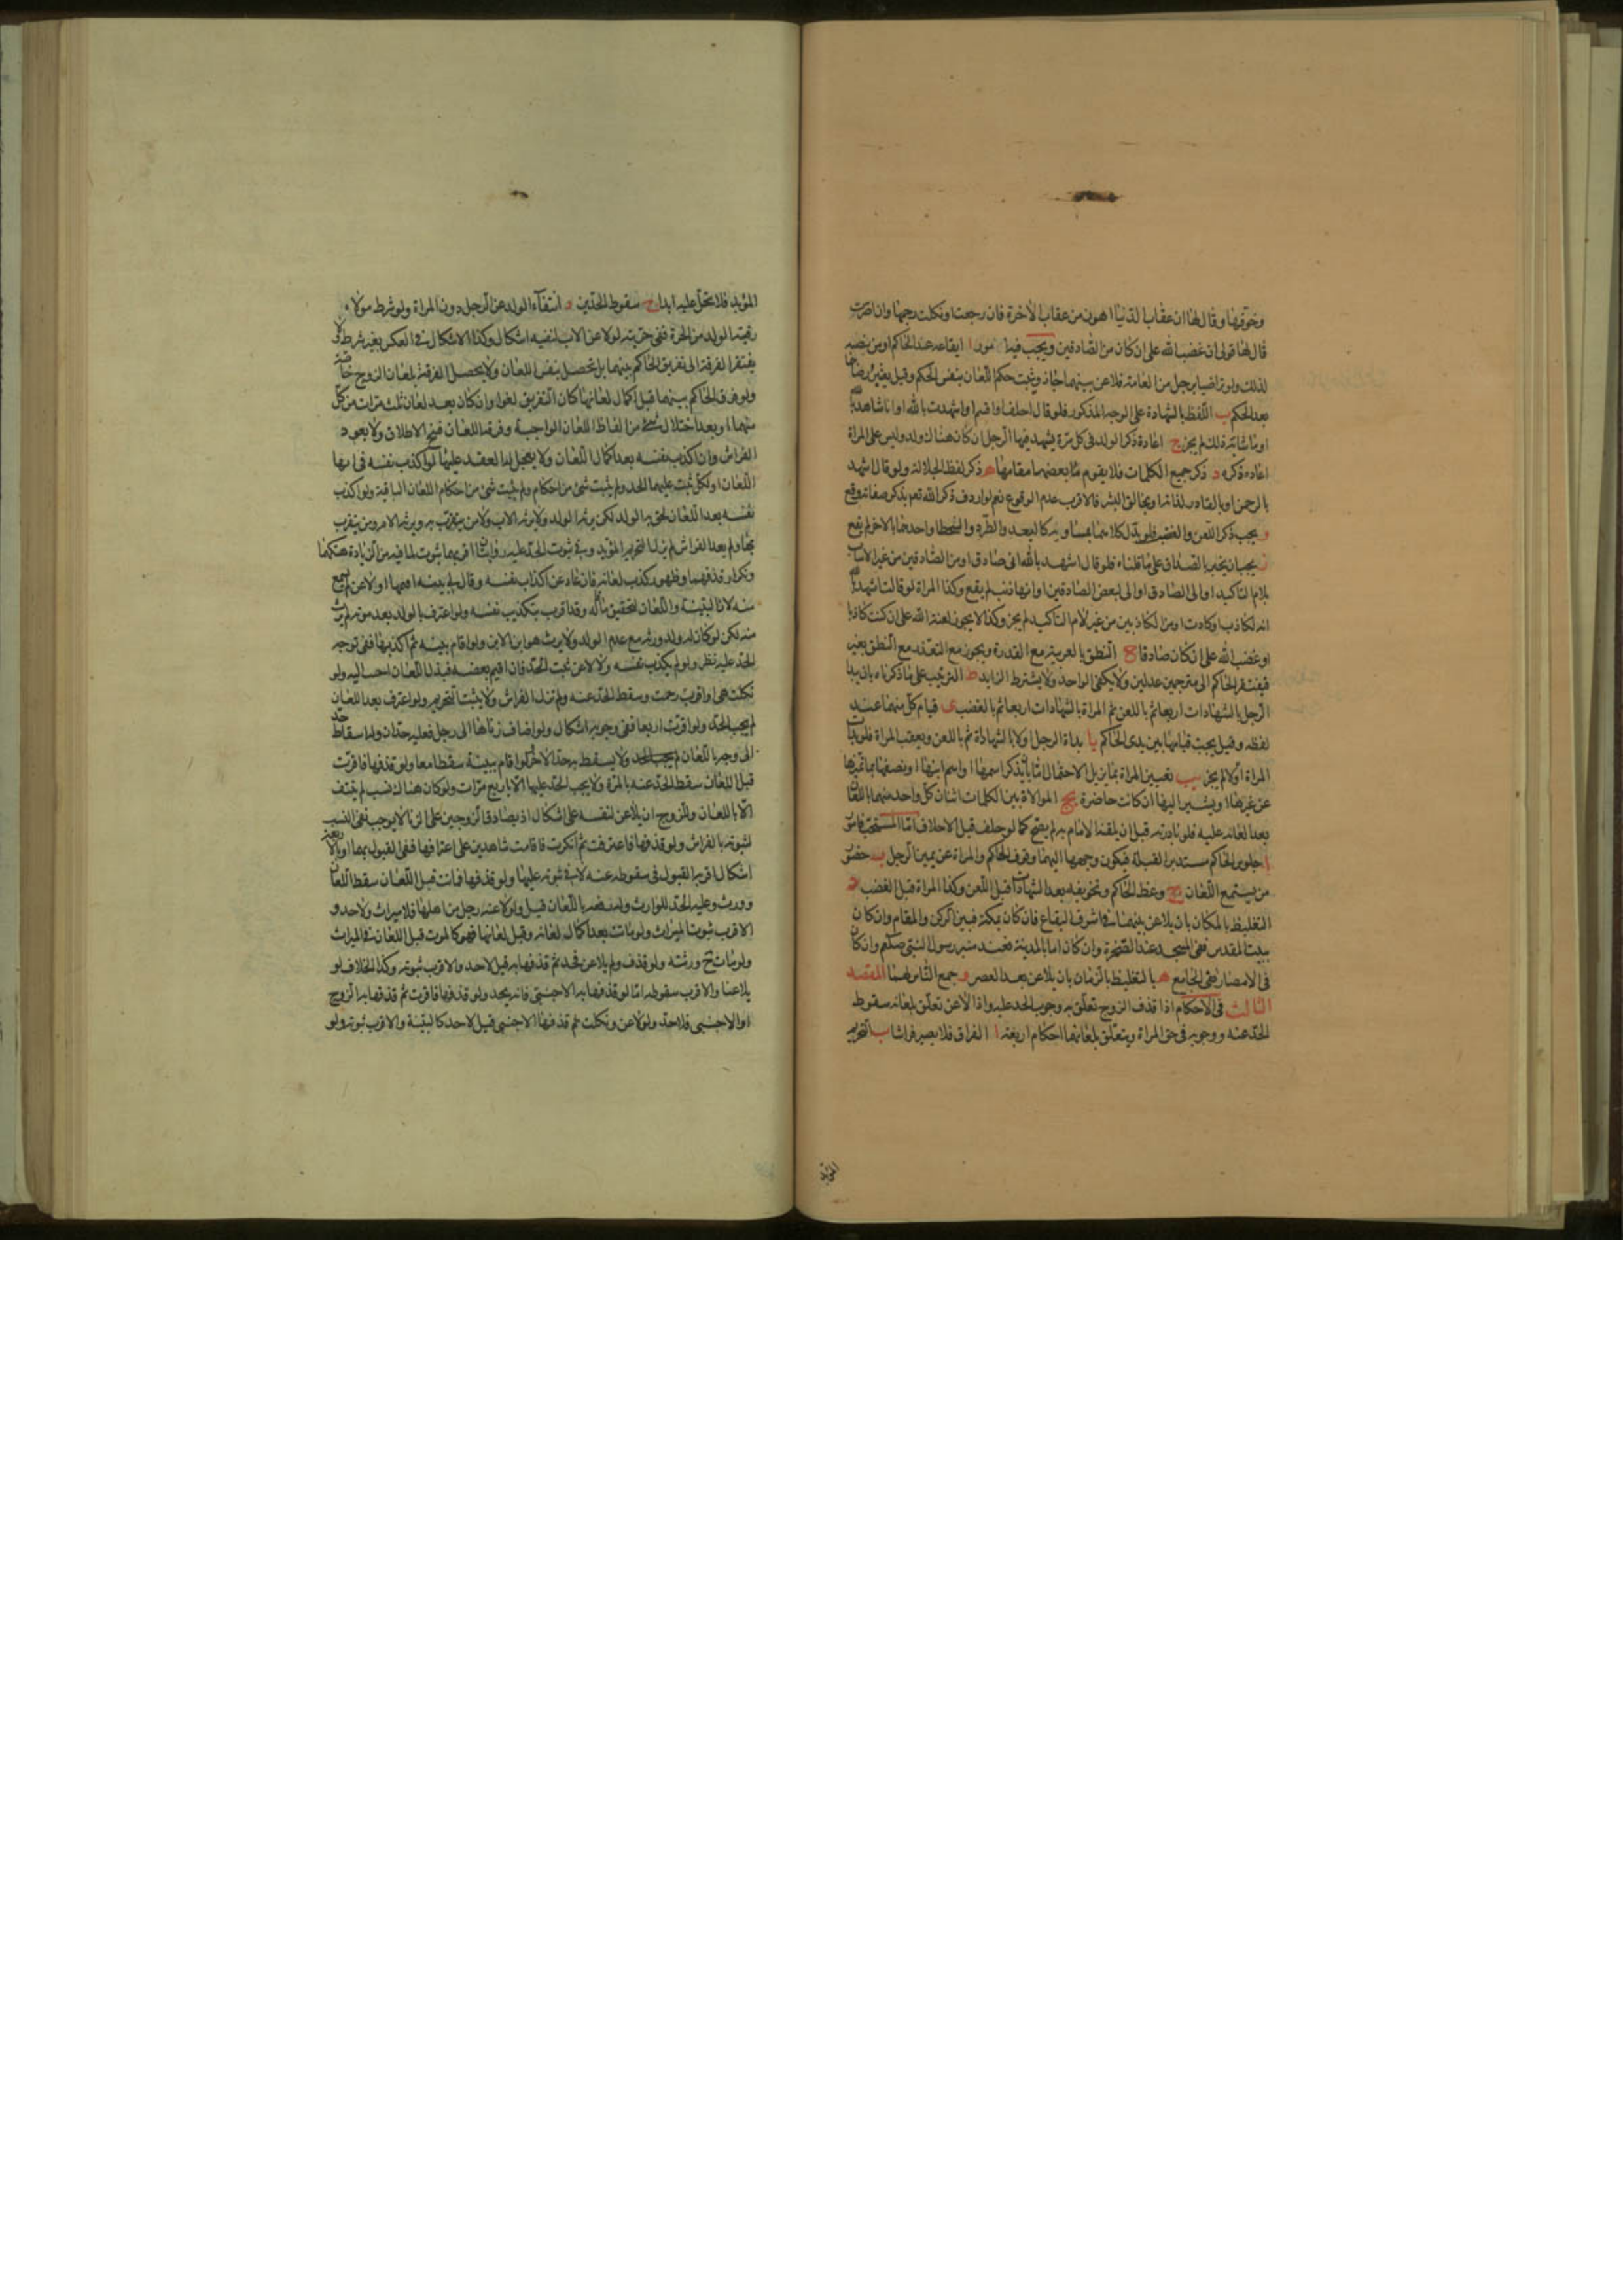 وخوفها وقال لها ان عقاب الدنيا اهون من عقاب الاخرة فان رجعت او نكلت رجمها وان اصرت
قال لها قولى ان غضب الله على ان كان من الصادقين ويجب فيه امور ا ايقاعه عند الحاكم او من نصبه
لذلك ولو تراضيا برجل من العامة فلاعن بينهما جاز ويثبت حكم اللعان بنفس الحكم وقيل يعتبر رضاهما
بعد الحكم ب التلفظ بالشهادة على الوجه المذكور فلو قال احلف او اقسم او شهدت بالله او انا شاهد بالله
او ما شابه ذلك لم يجز ج اعادة ذكر الولد فى كل مرة يشهد فيها الرجل ان كان هناك ولد وليس على المراة
اعادة ذكره د ذكر جميع الكلمات فلا يقوم بعضها مقامها ه ذكر لفظ الجلالة ولو قال اشهد
بالرحمن او بالقادر لذاته او بخالق البشر فالاقرب عدم الوقوع نعم لو اردف ذكر الله تعم بذكر صفاته وقع
و يجب ذكر اللعن والغضب فلو بدل كلا منهما بمساويه كالبعد والطرد والسخط او احدهما بالاخر لم يقع
ز يجب ان يخبر بالصدق على ما قلناه فلو قال اشهد بالله انى صادق او من الصادقين من غير الاتيان
بلام التاكيد او انى الصادق او انى لبعض الصادقين او انها زنت لم يقع وكذا المراة لو قالت اشهد بالله
انه لكاذب او كاذب او من الكاذبين من غير لام التاكيد لم يجز وكذا لا يجوز لعنة الله على ان كنت كاذبا
او غضب الله على ان كان صادقا ح النطق بالعربية مع القدرة ويجوز مع التعذر مع النطق بغيره
فيفتقر الحاكم الى مترجمين عدلين ولا يكفى الواحد ولا يشترط الزايد ط الترتيب على ما ذكرناه بان يبدا
الرجل بالشهادات اربعا ثم باللعن ثم المراة بالشهادات اربعا ثم بالغضب ى قيام كل منهما عند
لفظه وقيل يجب قيامها بين يدى الحاكم يا بداة الرجل اولا بالشهادة ثم باللعن ويعقب المراة فلو بدات
المراة اولا لم يجز يب تعيين المراة بما يزيل الاحتمال اما بان يذكر اسمها او اسم ابيها او يصفها بما تميزها
عن غيرها او يشير اليها ان كانت حاضرة يج الموالاة بين الكلمات اتيان كل واحد منهما باللعان
بعد القائه عليه فلو بادر به قبل ان يلقنه الامام به لم يصح كما لو حلف قبل الاحلاف اما المستحب فامور
ا جلوس الحاكم مستدبر القبلة فيكون وجهها اليهما وقوف الحاكم والمراة عن يمين الرجل ب حضور
من يستمع اللعان ج وعظ الحاكم وتخويفه بعد الشهادات قبل اللعن وكذا المراة قبل الغضب د
التغليظ بالمكان بان يلاعن بينهما فى اشرف البقاع فان كان بمكة فبين الركن والمقام وان كان
بيت المقدس ففى المسجد عند الصخرة وان كان اما بالمدينة فعند منبر رسول النبى صلعم وان كان
فى الامصار ففى الجامع ه بالتغليظ بالزمان بان يلاعن بعد العصر و جمع الناس لهما المقصد
الثالث فى الاحكام اذا قذف الزوج تعلق به وجوب الحد عليه واذا لاعن تعلق بلعانه سقوط
الحد عنه ووجوبه فى حق المراة ويتعلق بلعانهما احكام اربعة ا الفراق فلا يصير فراشا ب التحريم
المؤبد
المؤبد فلا تحل عليه ابدا ج سقوط الحدين د انتفاء الولد عن الرجل دون المراة ولو شرط مولاه
رقية الولد من الحرة ففى حريته لو لاعن الاب لنفيه اشكال وكذا الاشكال فى العكس بغير شرط ولا
يفتقر الفرقة الى تفريق الحاكم بينهما بل تحصل بنفس اللعان ولا يحصل الفرقة بلعان الزوج خاصة
ولو فرق الحاكم بينهما قبل اكمال لعانهما كان التفريق لغوا وان كان بعد لعان ثلث مرات من كل
منهما او بعد اختلال شئ من الفاظ اللعان الواجبة وفرقة اللعان فسخ لا طلاق ولا يعود
الفراش وان اكذب نفسه بعد اكمال اللعان ولا يحل له العقد عليها ولو اكذب نفسه فى اثناء
اللعان او نكل ثبت عليهما الحد ولم يثبت شئ من احكام ولم يثبت شئ من احكام اللعان الباقية ولو اكذب
نفسه بعد اللعان لحق به الولد لكن يرثه الولد ولا يرثه الاب ولا من يتقرب به ويرثه الام ومن يتقرب
بها ولم يعد الفراش لم يزل التحريم المؤبد وفى ثبوت الحد عليه روايتان اقربهما ثبوت لما فيه من الزيادة هتكها
وتكرار قذفهما وظهور كذب لعانه فان عاد عن اكذاب نفسه وقال لى بينة اقيمها او لاعن لم يسمع
منه لان البينة واللعان لتحقيق ما قاله وقد اقر بتكذيب نفسه ولو اعترف بالولد بعد موته لم يرث
منه لكن لو كان له ولد ورثه مع عدم الولد ولا يرث هو ابن الابن ولو اقام بينة ثم اكذبها ففى توجه
الحد عليه نظر ولو لم يكذب نفسه ولا لاعن ثبت الحد فان اقيم بعضه فبذل اللعان اجيب اليه ولو
نكلت هى او اقرت رجمت وسقط الحد عنه ولم تزل الفراش ولا يثبت التحريم ولو اعترف بعد اللعان
لم يجب الحد ولو اقرت اربعا ففى وجوبه اشكال ولو اضاف زناها الى رجل فعليه حدان وله اسقاط حد
الى وجه باللعان ولا يسقط به حد الاخر ولو اقام بينة سقطا معا ولو قذفها فاقرت
قبل اللعان سقط الحد عنه بالمرة ولا يجب الحد عليها الا باربع مرات ولو كان هناك نسب لم ينتف
الا باللعان وللزوج ان يلاعن لنفسه على اشكال اذ تصادق الزوجين على الزنا لا يوجب نفى النسب
لثبوته بالفراش ولو قذفها فاعترفت ثم انكرت فاقامت شاهدين على اعترافها ففى القبول بهما او بالاربعة
اشكال اقربه القبول فى سقوطه عنه لا فى ثبوته عليها ولو قذفها فماتت قبل اللعان سقط اللعان
وورث وعليه الحد للوارث وله نفيه باللعان قيل ولو لاعنه رجل من اهلها فلا ميراث ولا حد و
الاقرب ثبوت الميراث ولو مات بعد اكمال لعانه وقبل لعانها فهو كالموت قبل اللعان فى الميراث
ولو مات ح ورثته ولو قذف ولم يلاعن فحد ثم قذفها به قيل لا حد والاقرب ثبوته وكذا الخلاف لو
يلاعنا والاقرب سقوطه اما لو قذفها به الاجنبى فانه يحد ولو قذفها فاقرت ثم قذفها به الزوج
او الاجنبى فلا حد ولو لاعن ونكلت ثم قذفها الاجنبى قيل لا حد كالبينة والاقرب ثبوته ولو